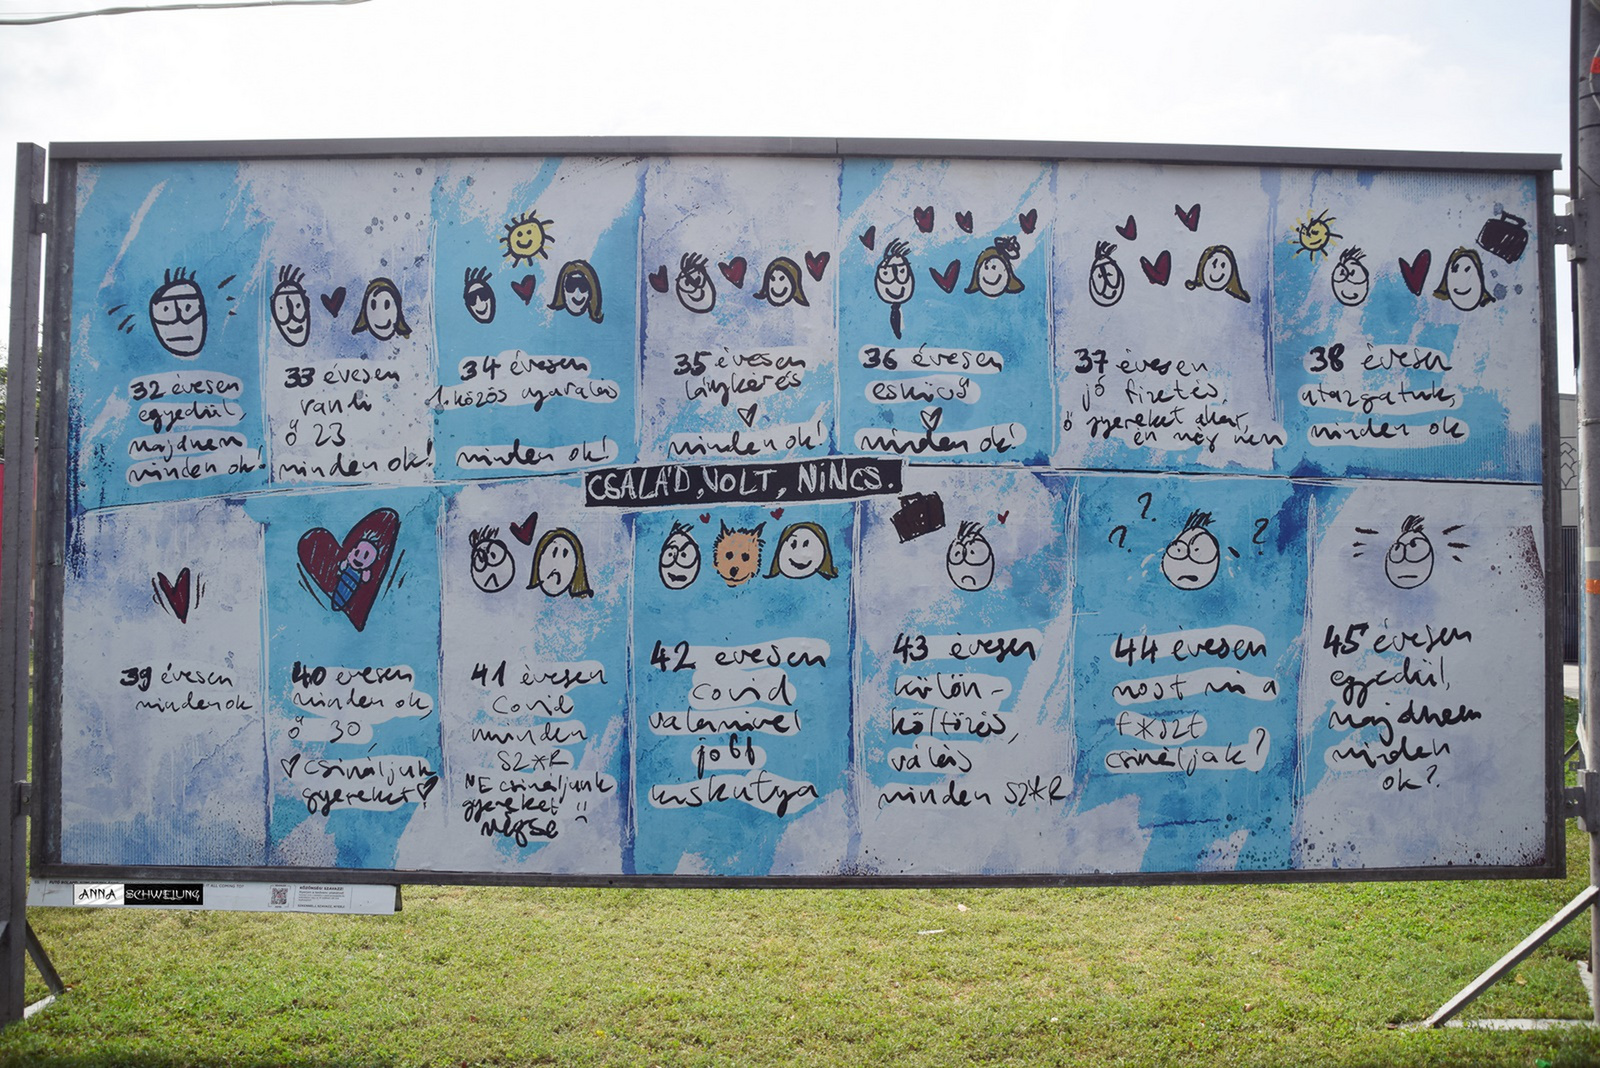 32 évesen
egyedül,
majdnem
minden ok!
33 évesen
randi
ő 23
minden ok!
34 évesen
1. közös nyaralás
minden ok!
35 évesen
lánykérés
minden ok!
36 évesen
esküvő
minden ok!
37 évesen
jó fizetés,
ő gyereket akar,
én még nem
38 évesen
utazgatunk,
minden ok
CSALÁD, VOLT, NINCS.
39 évesen
minden ok
40 évesen
minden ok,
ő 30,
csináljunk
gyereket
41 évesen
Covid
minden
SZ*R
NE csináljunk
gyereket
42 évesen
covid
valamivel
jobb
kiskutya
43 évesen
külön-
költözés,
válás
minden SZ*R
44 évesen
most mi a
f*szt
csináljak?
45 évesen
egyedül,
majdnem
minden
ok?
ANNA SCHWEJUNG